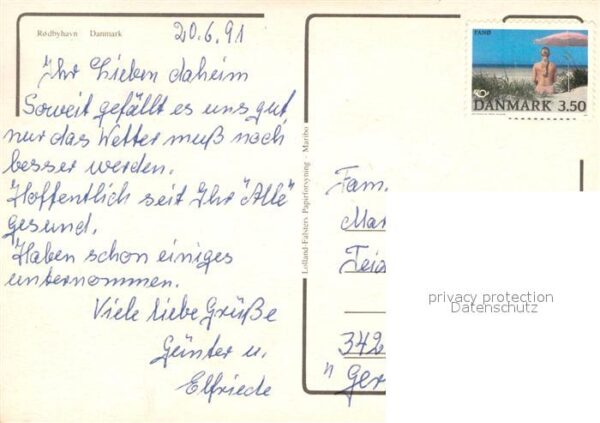 Rødbyhavn Danmark
20.6.91
Ihr Lieben daheim
Soweit gefällt es uns gut
nur das Wetter muß noch
besser werden.
Hoffentlich seit Ihr "Alle"
gesund.
Haben schon einiges
unternommen.
Viele liebe Grüße
Günter u.
Elfriede
Lolland-Falsters Papirforsyning - Maribo
FANØ
DANMARK 3.50
Fam.
Mar
Teic
342
Ger
privacy protection
Datenschutz